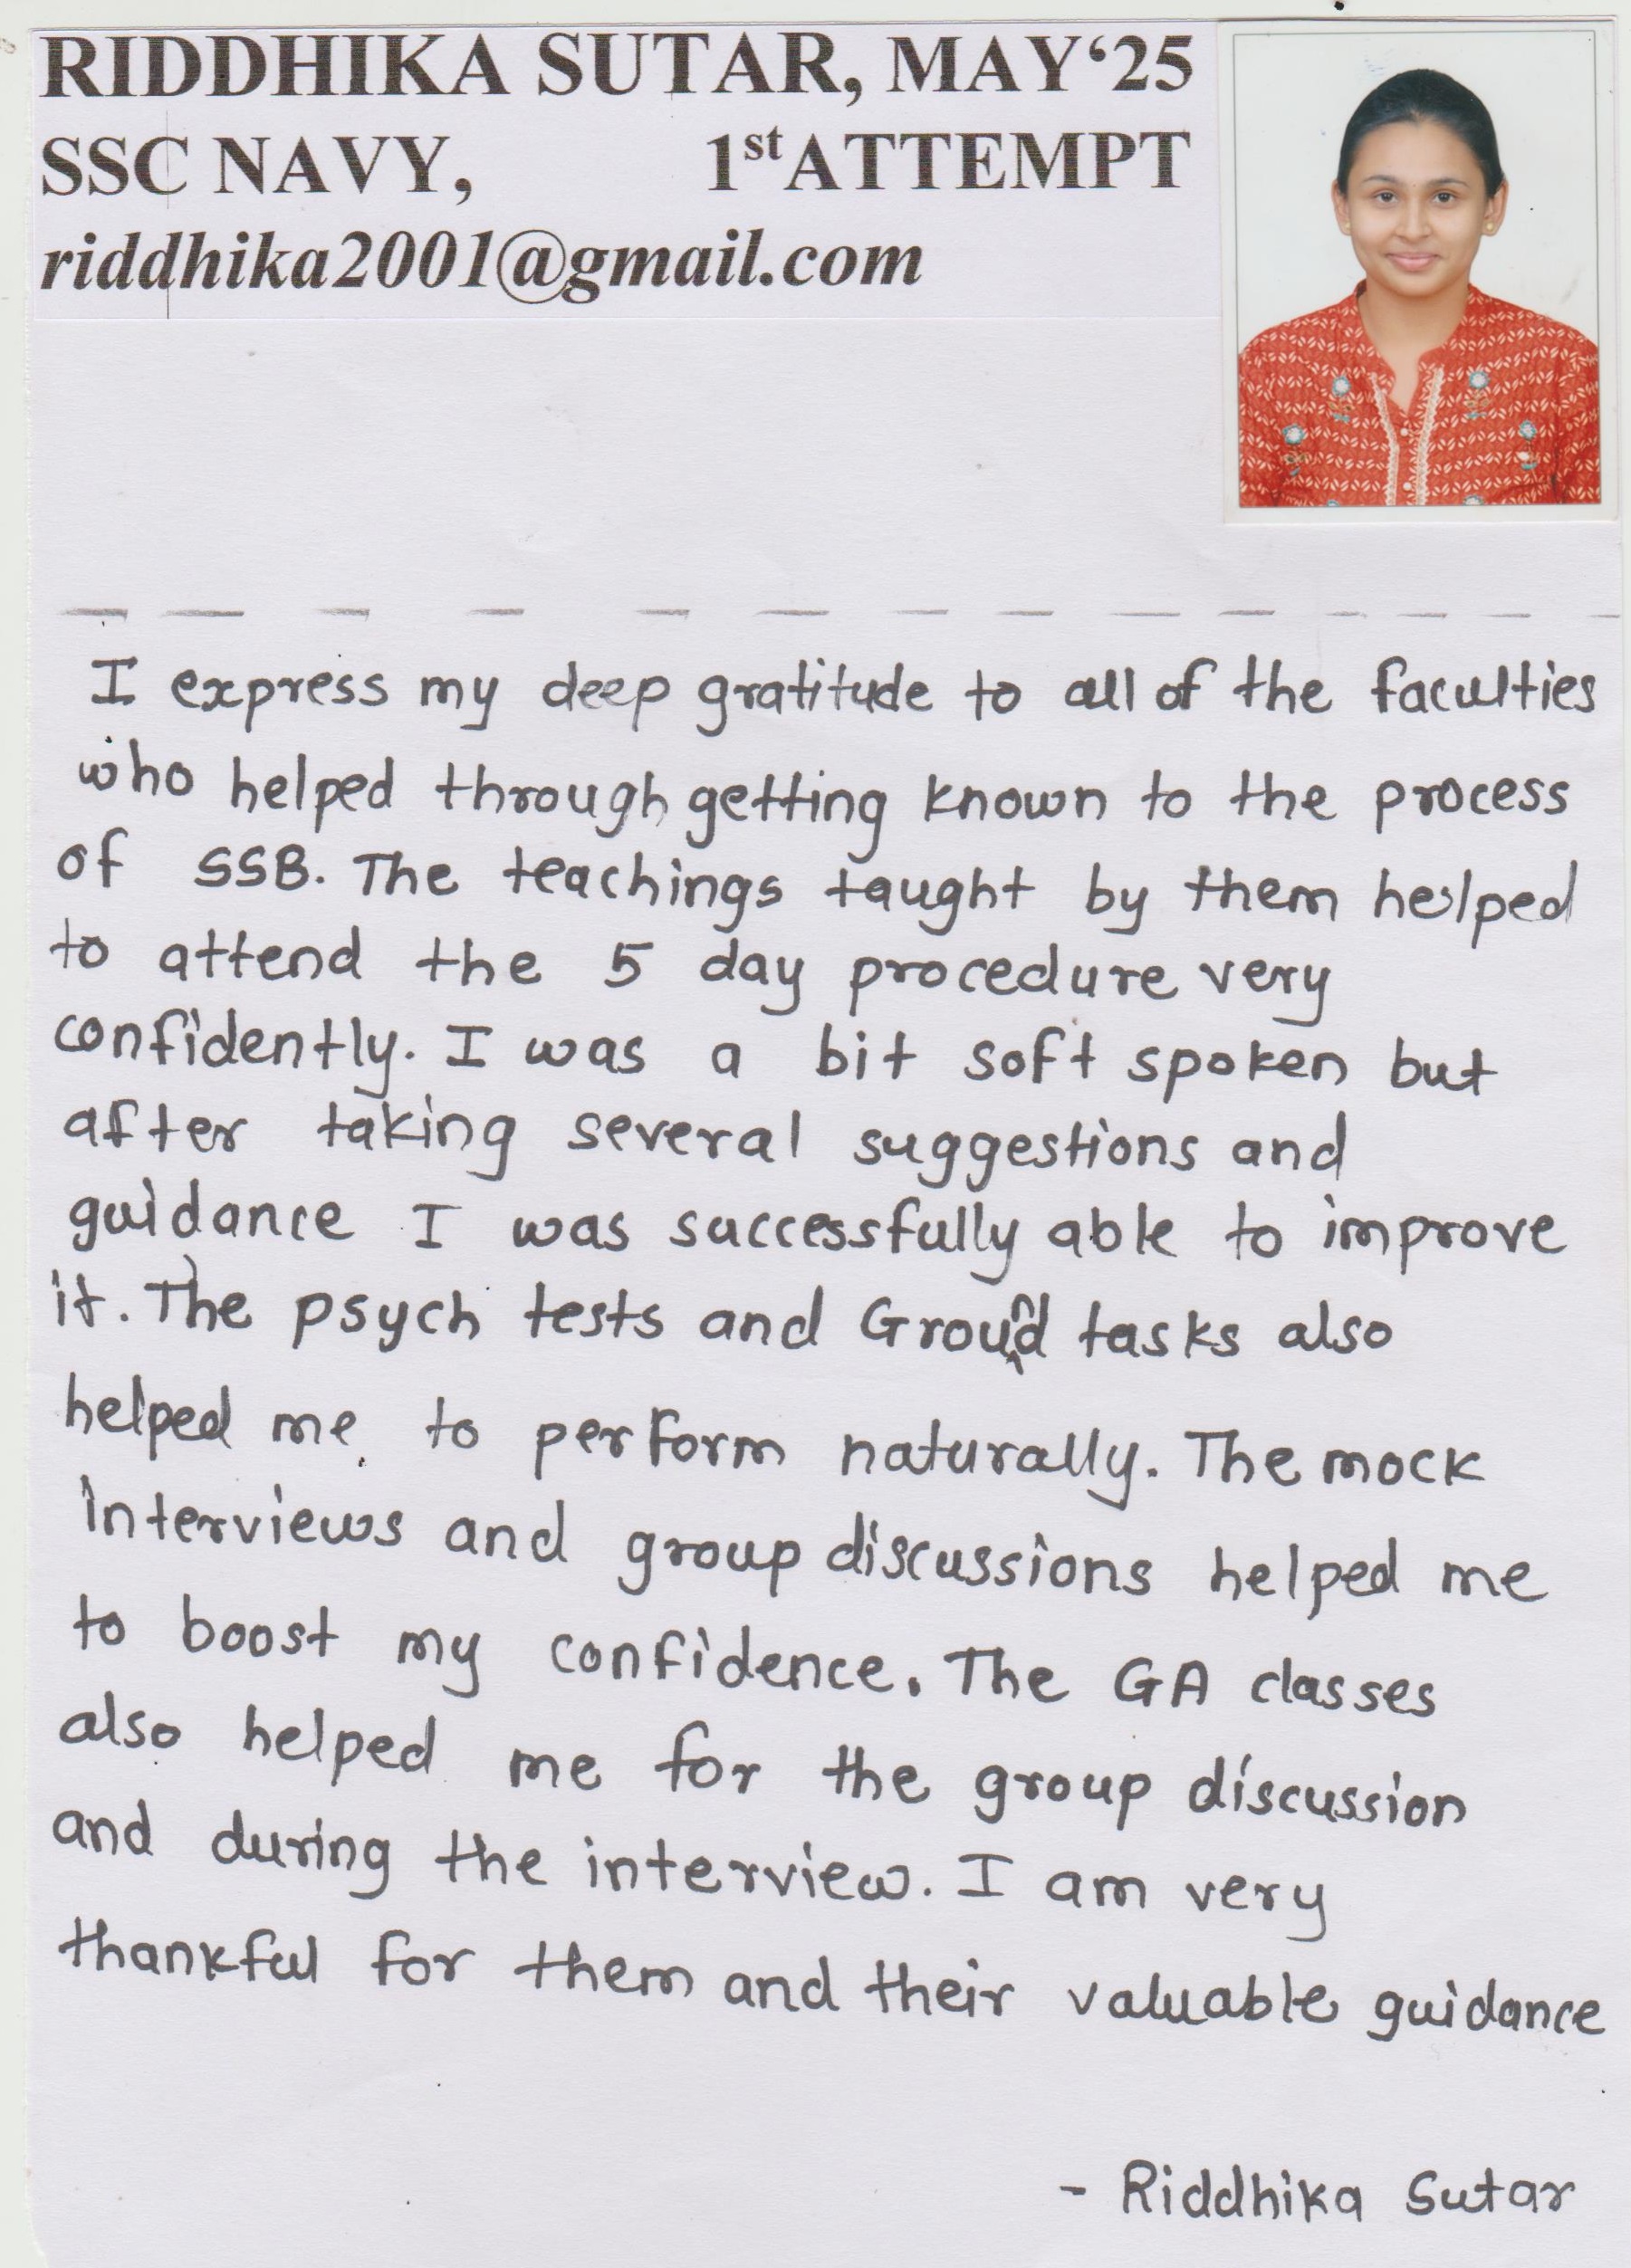 RIDDHIKA SUTAR, MAY‘25
SSC NAVY, 1st ATTEMPT
riddhika2001@gmail.com
I express my deep gratitude to all of the faculties
who helped through getting known to the process
of SSB. The teachings taught by them helped
to attend the 5 day procedure very
confidently. I was a bit soft spoken but
after taking several suggestions and
guidance I was successfully able to improve
it. The psych tests and Ground tasks also
helped me to perform naturally. The mock
interviews and group discussions helped me
to boost my confidence. The GA classes
also helped me for the group discussion
and during the interview. I am very
thankful for them and their valuable guidance
- Riddhika Sutar